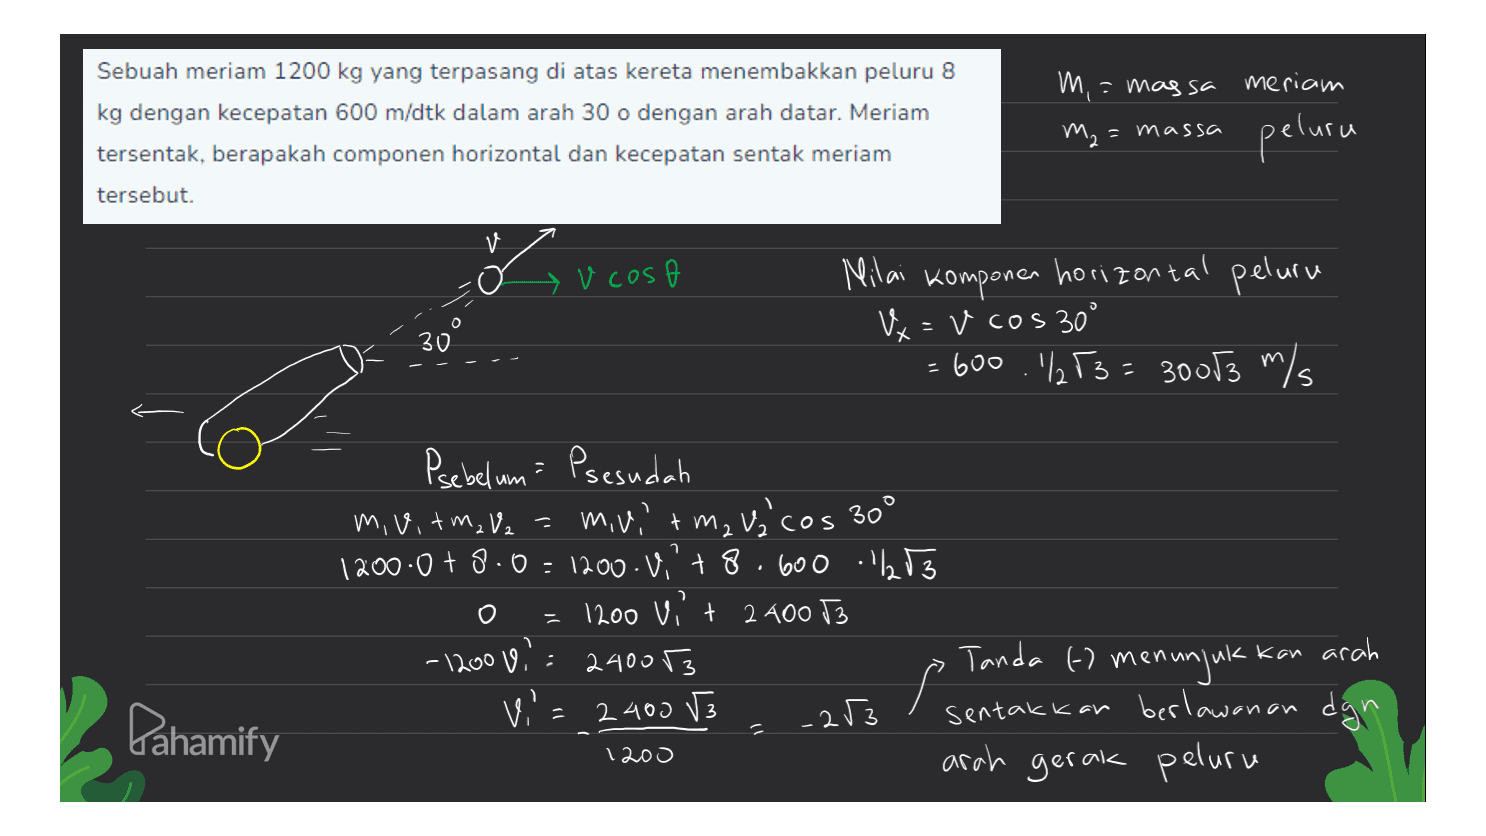 Sebuah meriam 1200 kg yang terpasang di atas kereta menembakkan peluru 8
kg dengan kecepatan 600 m/dtk dalam arah 30 o dengan arah datar. Meriam
tersentak, berapakah componen horizontal dan kecepatan sentak meriam
tersebut.
m₁ = massa meriam
m₂ = massa peluru
v
v cos θ
30°
Nilai komponen horizontal peluru
Vx = v cos 30°
= 600 . 1/2 √3 = 300√3 m/s
Psebelum = Psesudah
m₁v₁ + m₂v₂ = m₁v₁' + m₂v₂' cos 30°
1200.0 + 8.0 = 1200.v₁' + 8 . 600 . 1/2 √3
0 = 1200 v₁' + 2400 √3
-1200 v₁' = 2400 √3
v₁' = - 2400 √3 / 1200 = -2√3
Tanda (-) menunjukkan arah
sentakkan berlawanan dgn
arah gerak peluru
Pahamify